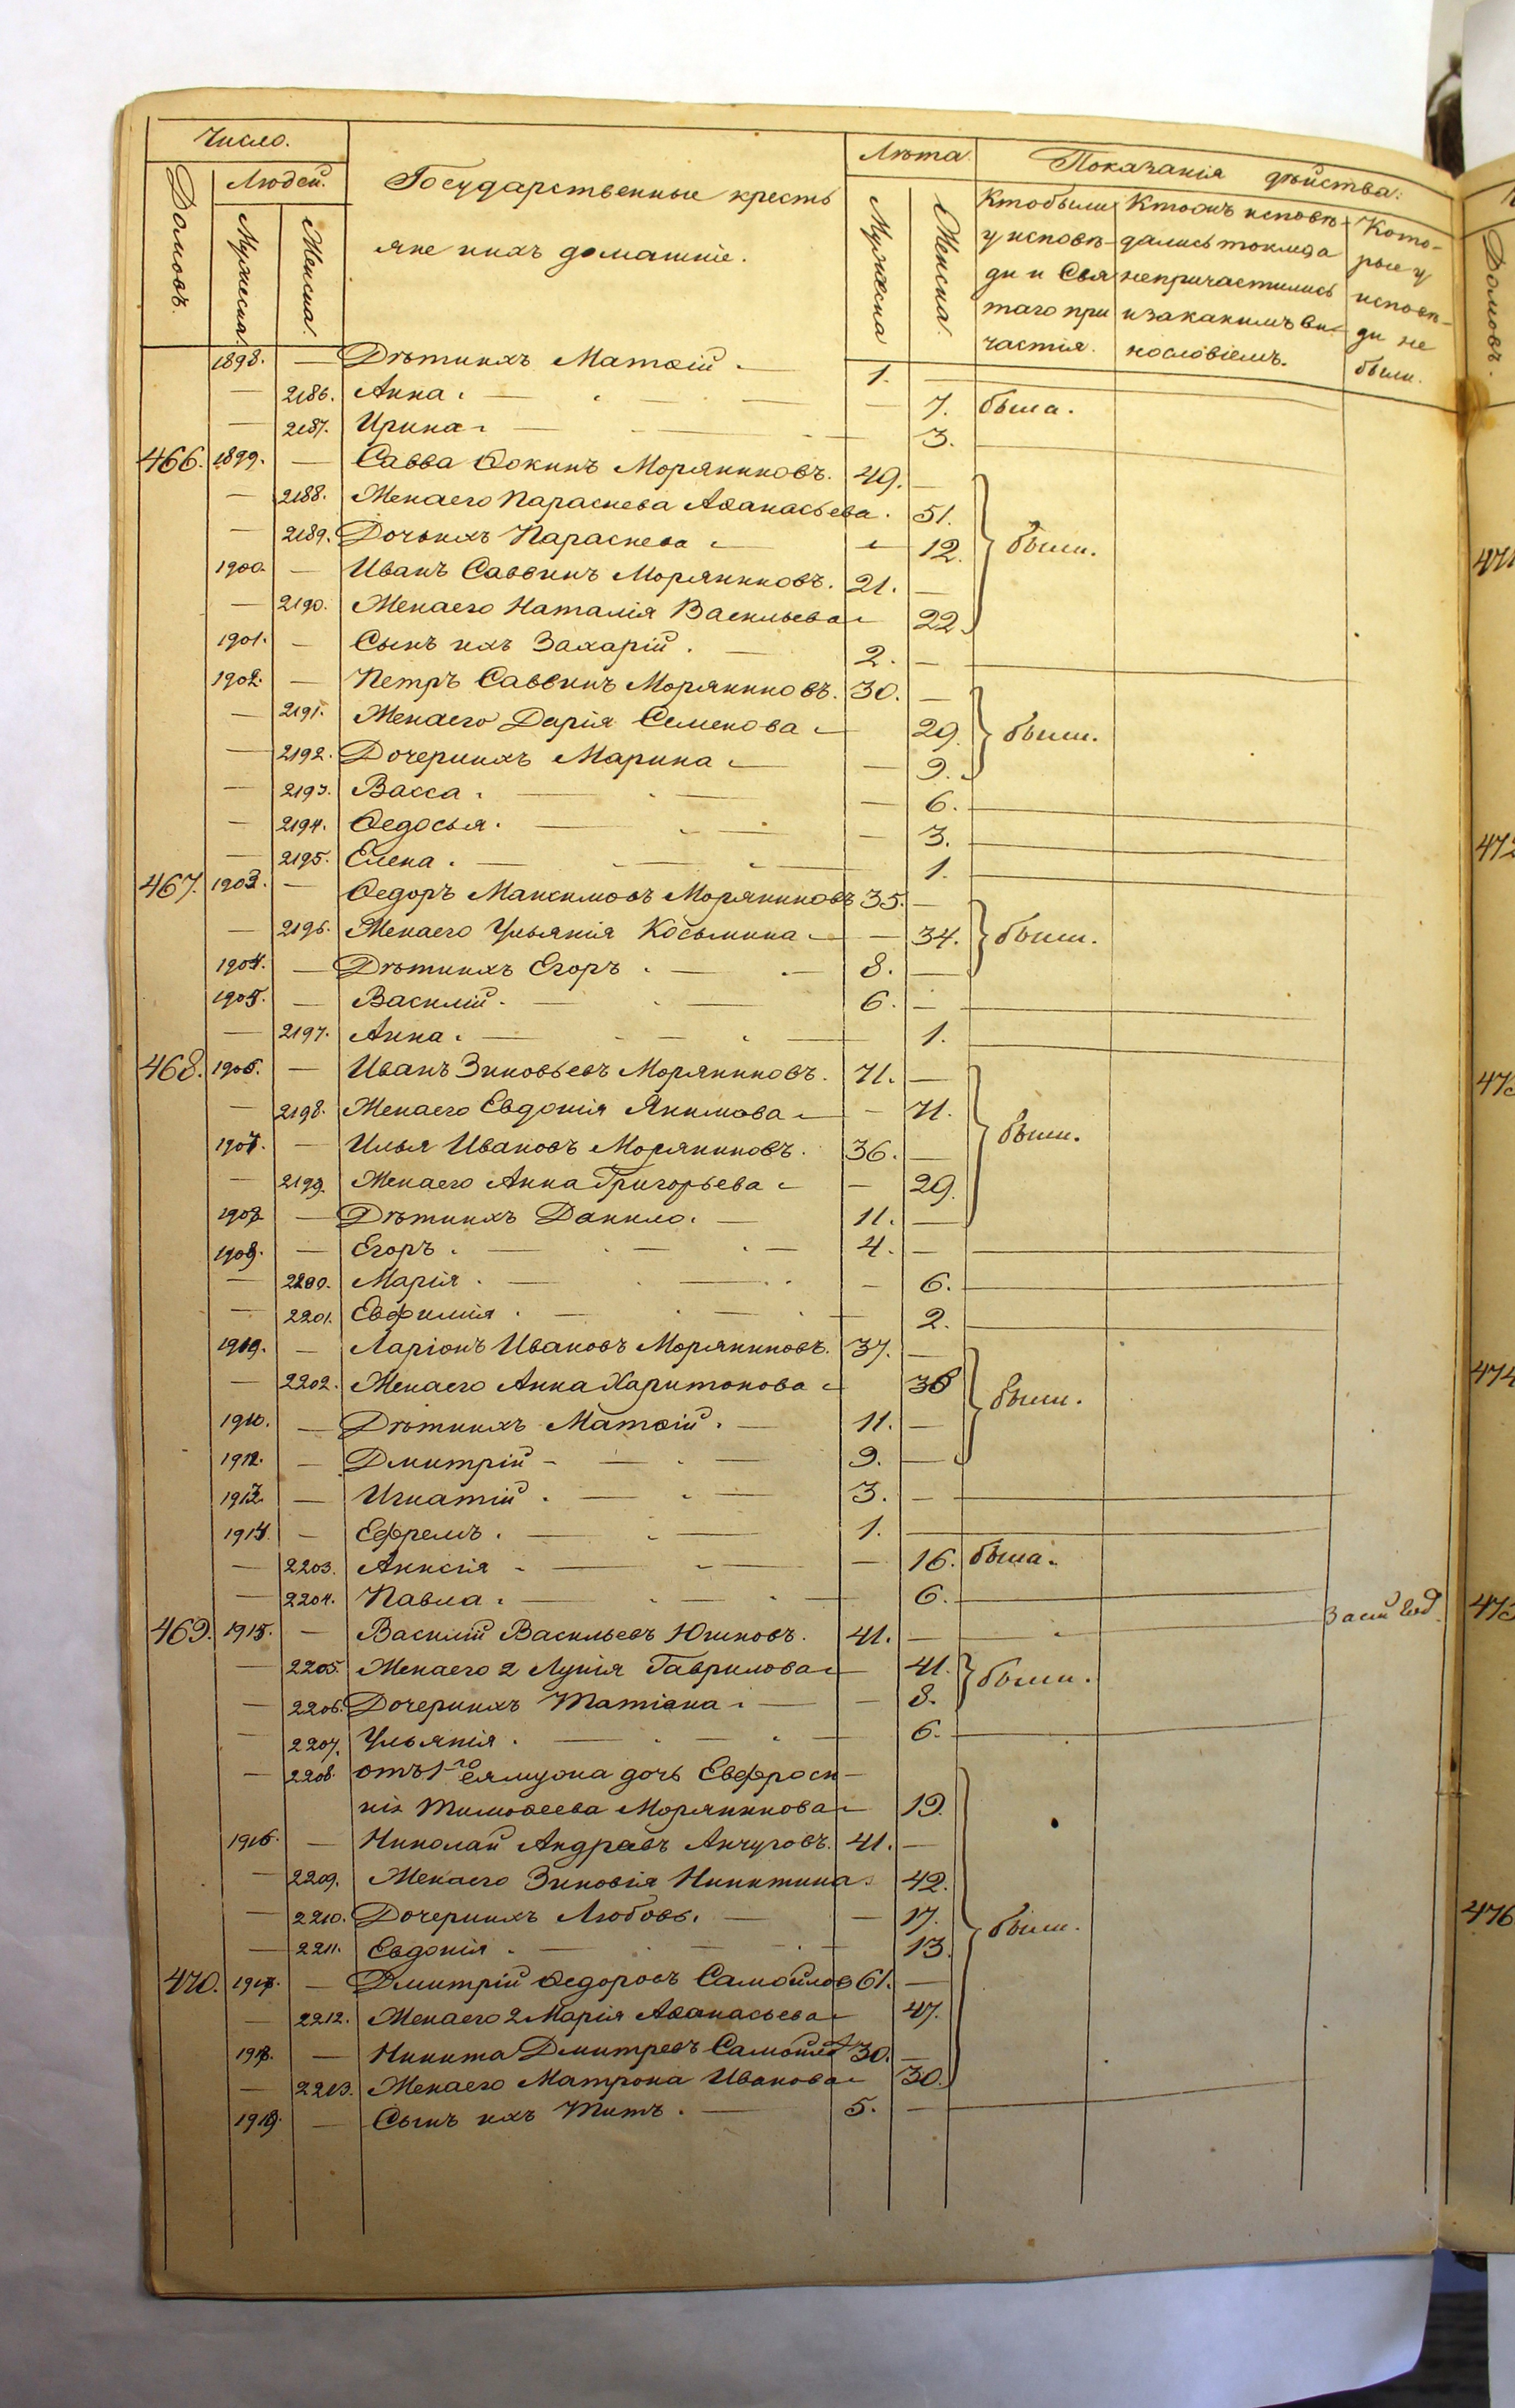 Число.
Лѣта
Показанія дѣйства:
Домовъ.
Людей.
Государственные кресть
Мужеска
Женска.
Мужска
Женска.
яне ихъ домашніе.
Кто были
у исповѣ-
ди и Свя
таго при
частія.
Кто жъ исповѣ-
дались токмода
непричастились
и за какимъ ви-
нословіемъ.
Кото-
рые у
исповѣ-
ди не
были.
1898. — Дѣти ихъ Матѳій. — 1. —
— 2186. Анна. — — 7. была.
— 2187. Ирина. — — 3.
466. 1899. — Савва Ѳокинъ Моряниновъ. 49. —
— 2188. Жена его Параскева Аѳанасьева. 51.
— 2189. Дочь ихъ Параскева — 12. были.
1900. — Иванъ Саввинъ Моряниновъ. 21. —
— 2190. Жена его Наталія Васильева 22
1901. — Сынъ ихъ Захарій. — 2. —
1902. — Петръ Саввинъ Моряниновъ. 30. —
— 2191. Жена его Дарія Семенова — 29. были.
— 2192. Дочери ихъ Марина — — 9.
— 2193. Васса. — — 6.
— 2194. Ѳедосья. — — 3.
— 2195. Елена. — — 1.
467. 1903. — Ѳедоръ Максимовъ Моряниновъ 35. —
— 2196. Жена его Ульянія Косьмина — 34. были.
1904. — Дѣти ихъ Егоръ. — 8. —
1905. — Василій. — 6. —
— 2197. Анна. — — 1.
468. 1906. — Иванъ Зиновьевъ Моряниновъ. 71. —
— 2198. Жена его Евдокія Якимова — 71.
1907. — Илья Ивановъ Моряниновъ. 36. — были.
— 2199. Жена его Анна Григорьева — 29.
1908. — Дѣти ихъ Данило. — 11. —
1909. — Егоръ. — 4. —
— 2200. Марія. — — 6.
— 2201. Евфимія. — — 2.
1910. — Ларіонъ Ивановъ Моряниновъ. 37. —
— 2202. Жена его Анна Харитонова — 38 были.
1911. — Дѣти ихъ Матѳій. — 11. —
1912. — Дмитрій — 9. —
1913. — Игнатій. — 3. —
1914. — Ефремъ. — 1. —
— 2203. Анисія — — 16. была.
— 2204. Павла. — — 6.
469. 1915. — Василій Васильевъ Юшковъ. 41. —
— 2205. Жена его 2 Лукія Гаврилова — 41. были.
— 2206. Дочери ихъ Татіана — — 8.
— 2207. Ульянія. — — 6.
— 2208. отъ 1го ея мужа дочь Евфроси-
нія Тимоѳеева Морянинова 19.
1916. — Николай Андреевъ Анчуговъ. 41. —
— 2209. Жена его Зиновія Никитина 42.
— 2210. Дочери ихъ Любовь. — — 17. были.
— 2211. Евдокія. — — 13.
470. 1917. — Дмитрій Ѳедоровъ Самойлов 61. —
— 2212. Жена его 2 Марія Аѳанасьева 47.
1918. — Никита Дмитревъ Самойлов 30. —
— 2213. Жена его Матрона Иванова 30.
1919. — Сынъ ихъ Титъ. — 5. —
Домовъ.
471
472
473
474
475
476